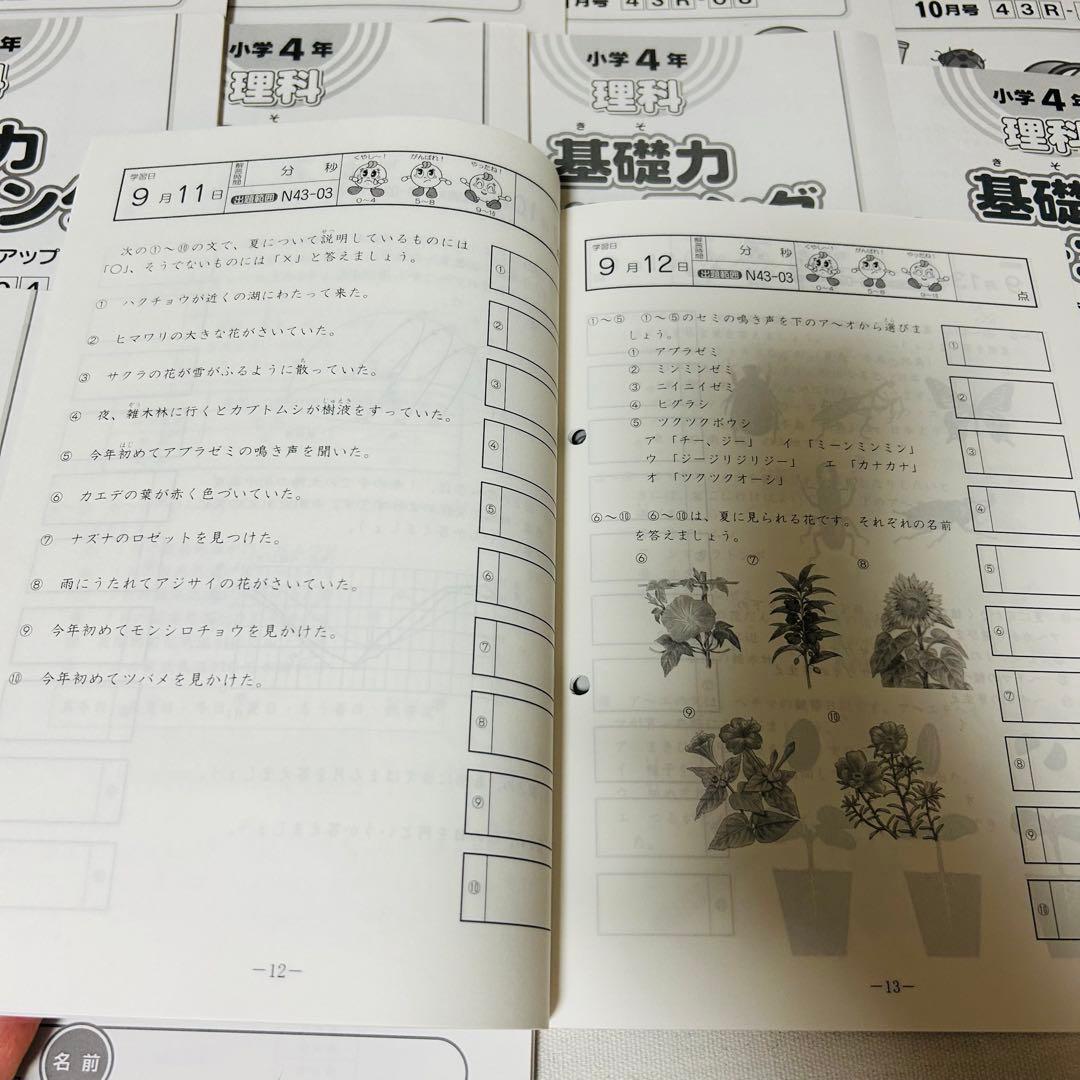 月号 43R-08
10月号 43R-
小学4年
理科
小学4年
理科
きそ
基礎力
小学4年
理科
きそ
基礎
年
科
力
ング
アップ
学習日
9月11日
解答時間
分 秒
出題範囲 N43-03
くやし〜!
0〜4
がんばれ!
5〜8
やったね!
9〜10
次の①〜⑩の文で、夏について説明しているものには
「○」、そうでないものには「×」と答えましょう。
① ハクチョウが近くの湖にわたって来た。
② ヒマワリの大きな花がさいていた。
③ サクラの花が雪がふるように散っていた。
④ 夜、雑木林に行くとカブトムシが樹液をすっていた。
⑤ 今年初めてアブラゼミの鳴き声を聞いた。
⑥ カエデの葉が赤く色づいていた。
⑦ ナズナのロゼットを見つけた。
⑧ 雨にうたれてアジサイの花がさいていた。
⑨ 今年初めてモンシロチョウを見かけた。
⑩ 今年初めてツバメを見かけた。
①
②
③
④
⑤
⑥
⑦
⑧
⑨
⑩
—12—
学習日
9月12日
解答時間
分 秒
出題範囲 N43-03
くやし〜!
0〜4
がんばれ!
5〜8
やったね!
9〜10
点
①〜⑤ ①〜⑤のセミの鳴き声を下のア〜オから選びま
しょう。
① アブラゼミ
② ミンミンゼミ
③ ニイニイゼミ
④ ヒグラシ
⑤ ツクツクボウシ
ア 「チー、ジー」 イ 「ミーンミンミン」
ウ 「ジージリジリジー」 エ 「カナカナ」
オ 「ツクツクオーシ」
⑥〜⑩ ⑥〜⑩は、夏に見られる花です。それぞれの名前
を答えましょう。
⑥ ⑦ ⑧
⑨ ⑩
①
②
③
④
⑤
⑥
⑦
⑧
⑨
⑩
—13—
名前